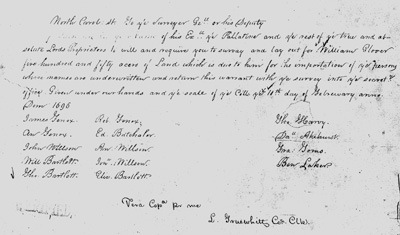 North Carol. ss. To ye Surveyor Genll or his Deputy
of his Exc. ye Pallatine and ye rest of ye true and ab-
solute Lords Proprietors to will and require you to survey and lay out for William Glover
five hundred and fifty acres of Land which is due to him for the importation of ye persons
whose names are underwritten and return this warrant with ye survey into ye secret.ys
office Given under our hands and ye seale of ye Coll. ye day of February anno
Dom 1696
James Tomes Rob. Tomes Tho. Harvy
An. Tomes Ed. Batchelor Danll Akehurst
John Willson An. Willson Fra. Toms
Will Bartlett Jon. Willson Ben Laker
Tho. Bartlett Eliz. Bartlett
Vera Copa per me
L. Cot. Clk.